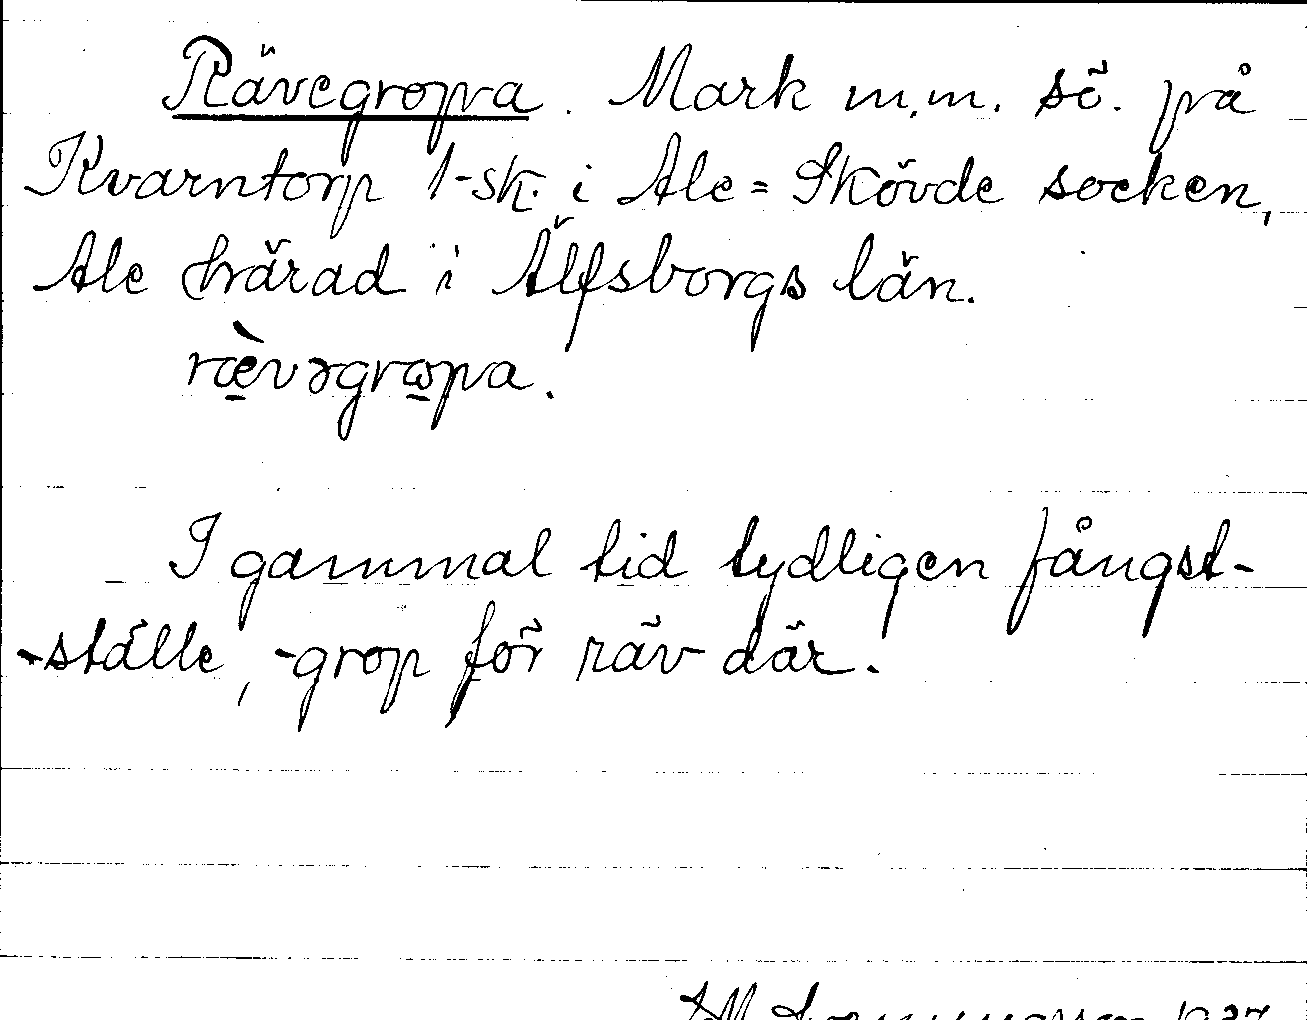 Rävegropa. Mark m.m. sö. på
Kvarntorp 1-sk. i Ale=Skövde socken,
Ale härad i Älfsborgs län.
ræ̀vəgrɷpa.
I gammal tid tydligen fångst-
-ställe, -grop för räv där.